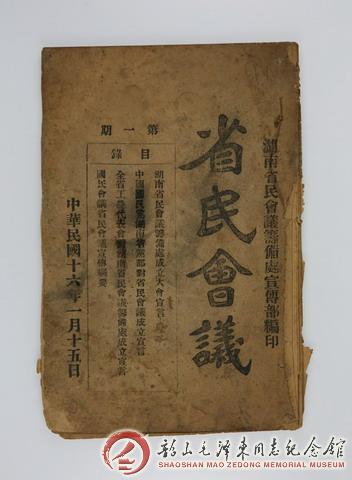 湖南省民會議籌備處宣傳部編印
省民會議
第一期
目錄
湖南省民會議籌備處成立大會宣言
中國國民黨湖南省黨部對省民會議成立宣言
全省工農代表會對湖南省民會議籌備處成立宣言
國民會議省民會議宣傳綱要
中華民國十六年一月十五日
韶山毛泽东同志纪念馆
SHAOSHAN MAO ZEDONG MEMORIAL MUSEUM